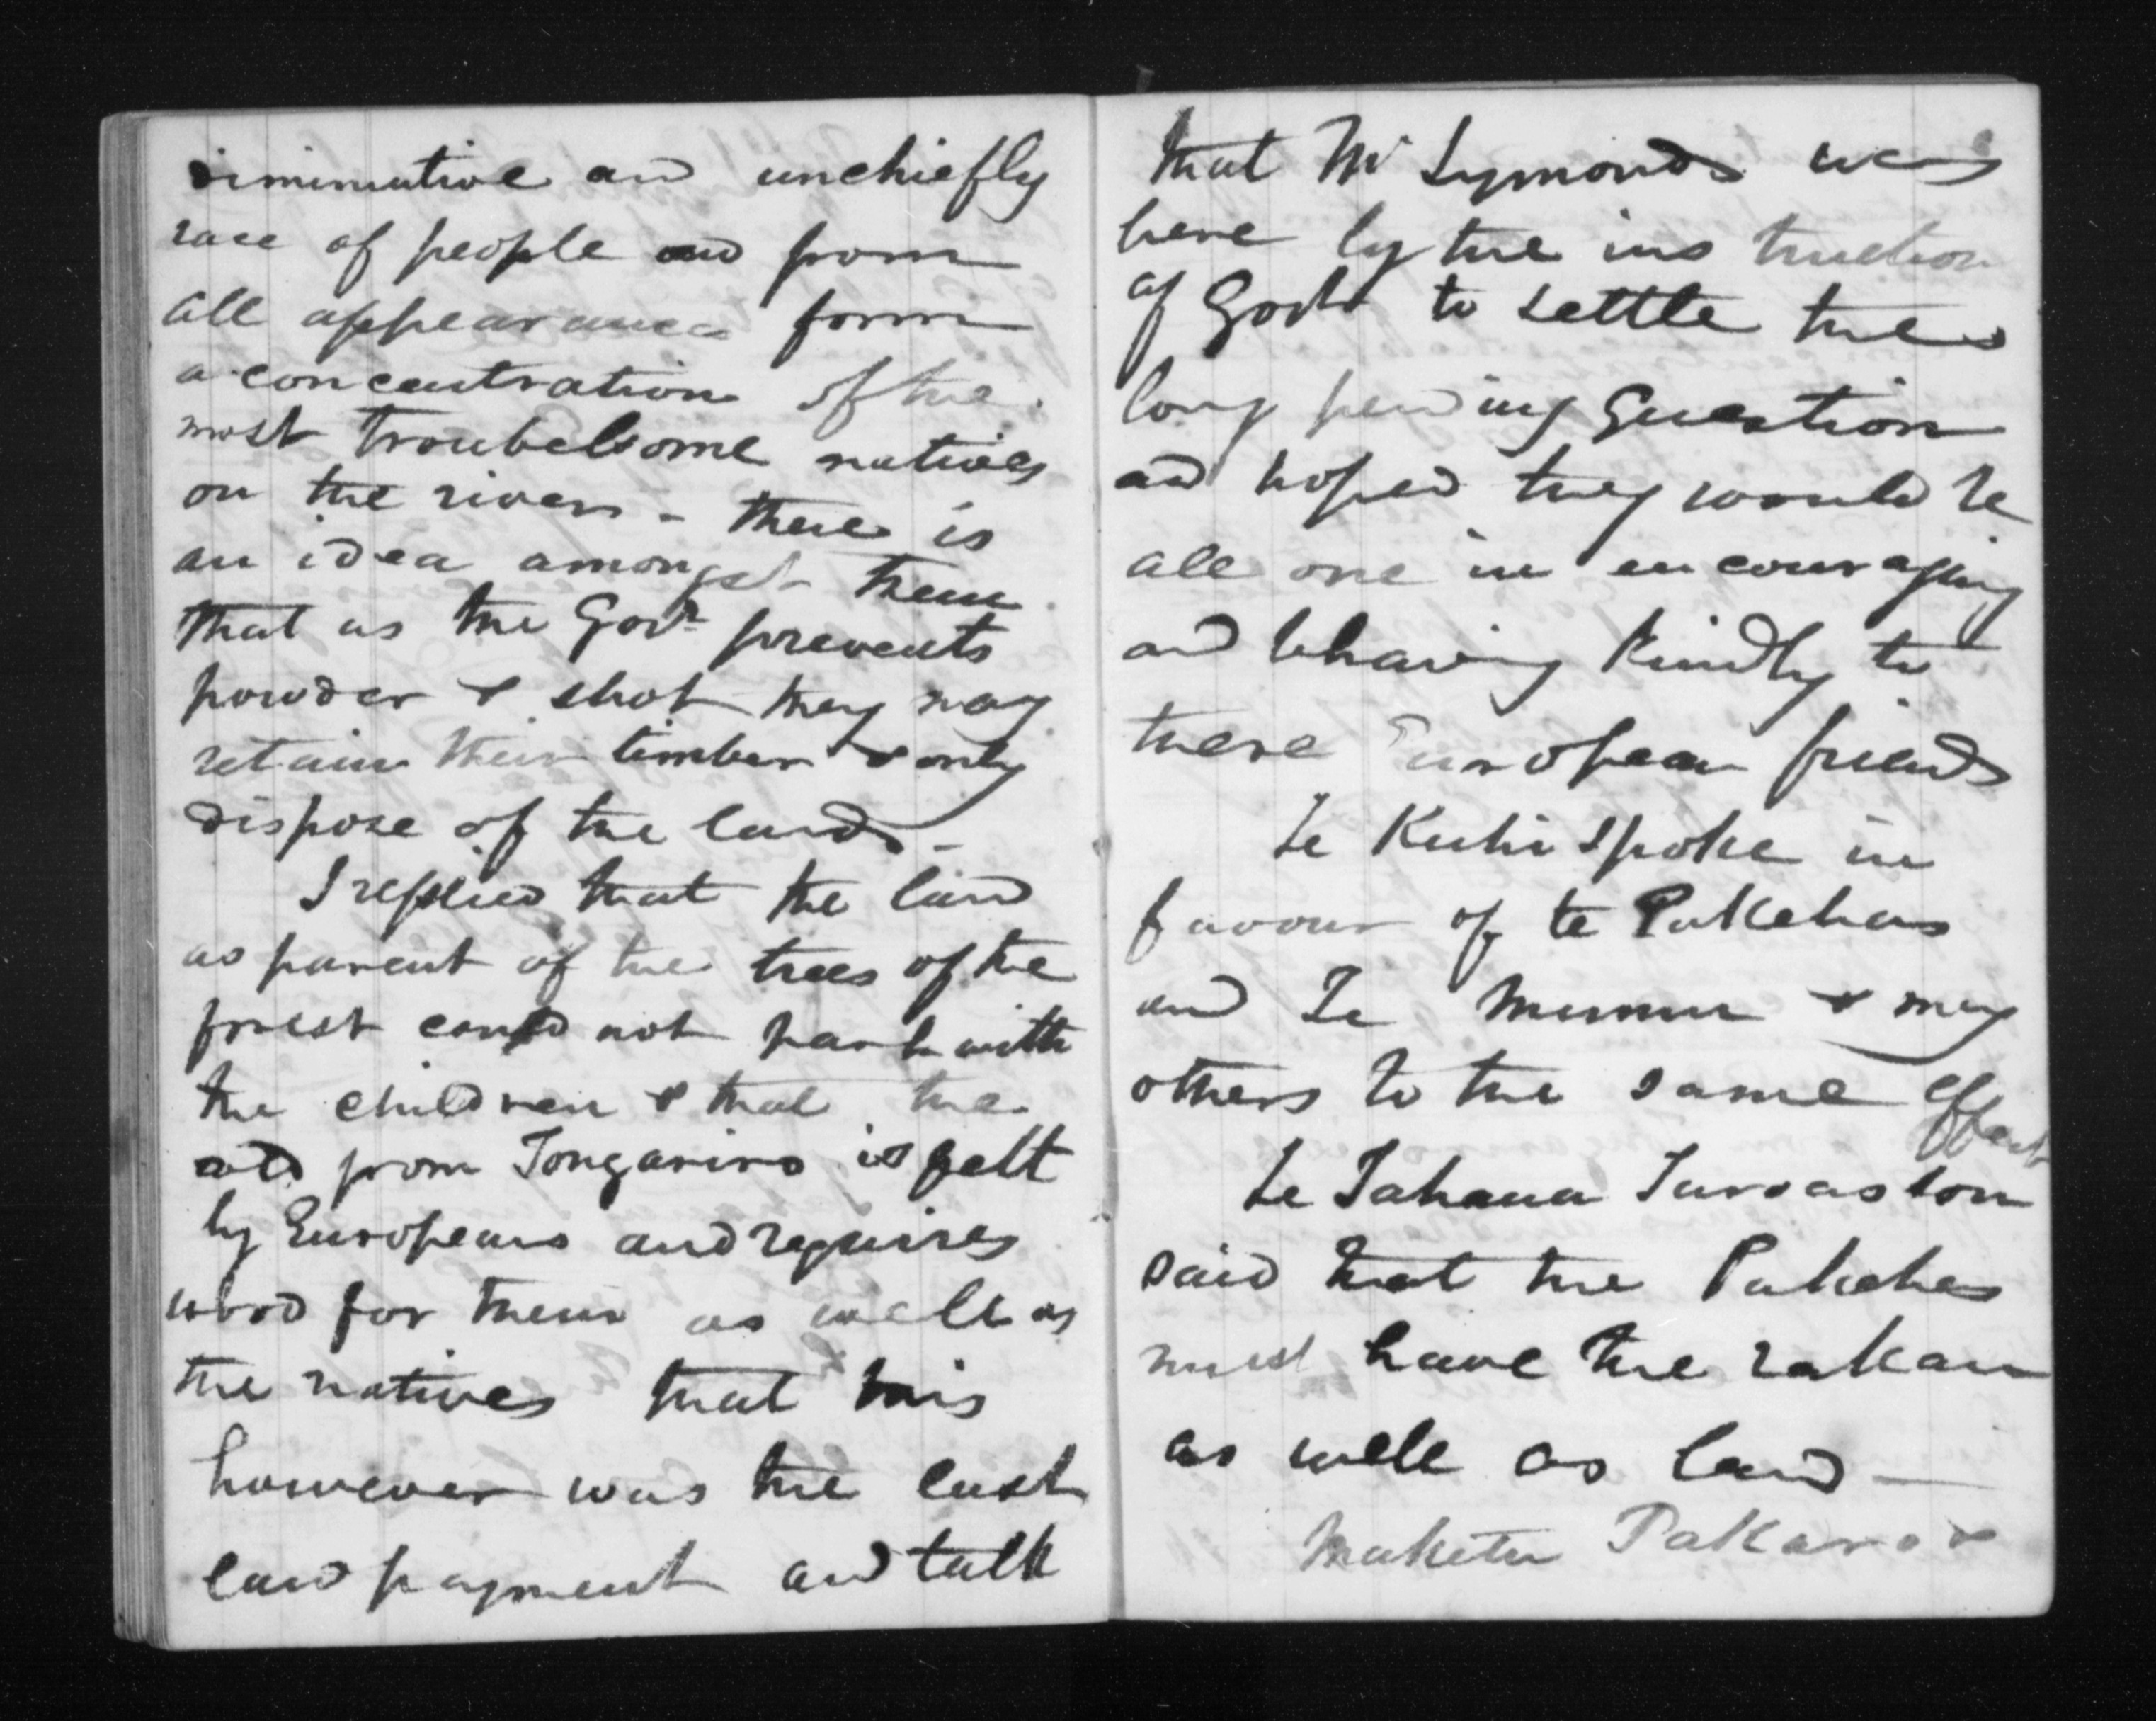 diminutive and unchiefly
race of people and from
all appearances form
a concentration of the
most troubelsome natives
on the rivers - there is
an idea amongst them
that as the Govt prevents
powder & shot they may
retain their timber & only
dispose of the lands -
I replied that the land
as parent of the trees of the
forest could not part with
the children & that the
from Tongariro is felt
by Europeans and requires
wood for them as well as
the natives that this
however was the last
land payment and talk
that Mr Symonds was
here by the instruction
of Govt to settle the
long pending Question
and hoped they would be
all one in encouraging
and behaving kindly to
there European friends
Te Kuhi spoke in
favour of te Pakehas
and Te & many
others to the same effect
Te Tahana Turoas son
said that the Pakehas
must have the rakau
as well as land -
Maketu